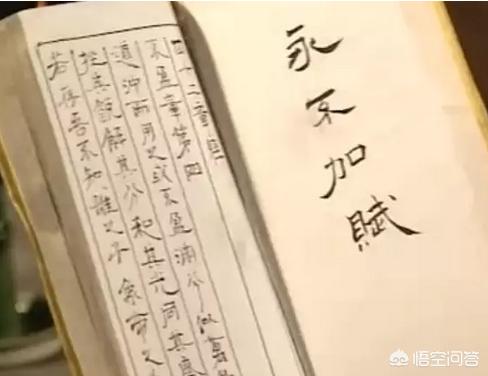 永不加賦
四十二章
不盈章第四
道沖而用之或不盈淵兮似萬
挫其銳解其分和其光同其塵
若存吾不知誰之子 象帝之
悟空问答